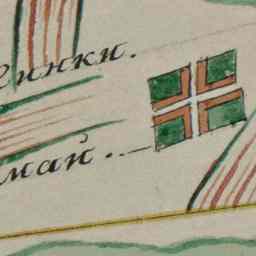 инки.
май.